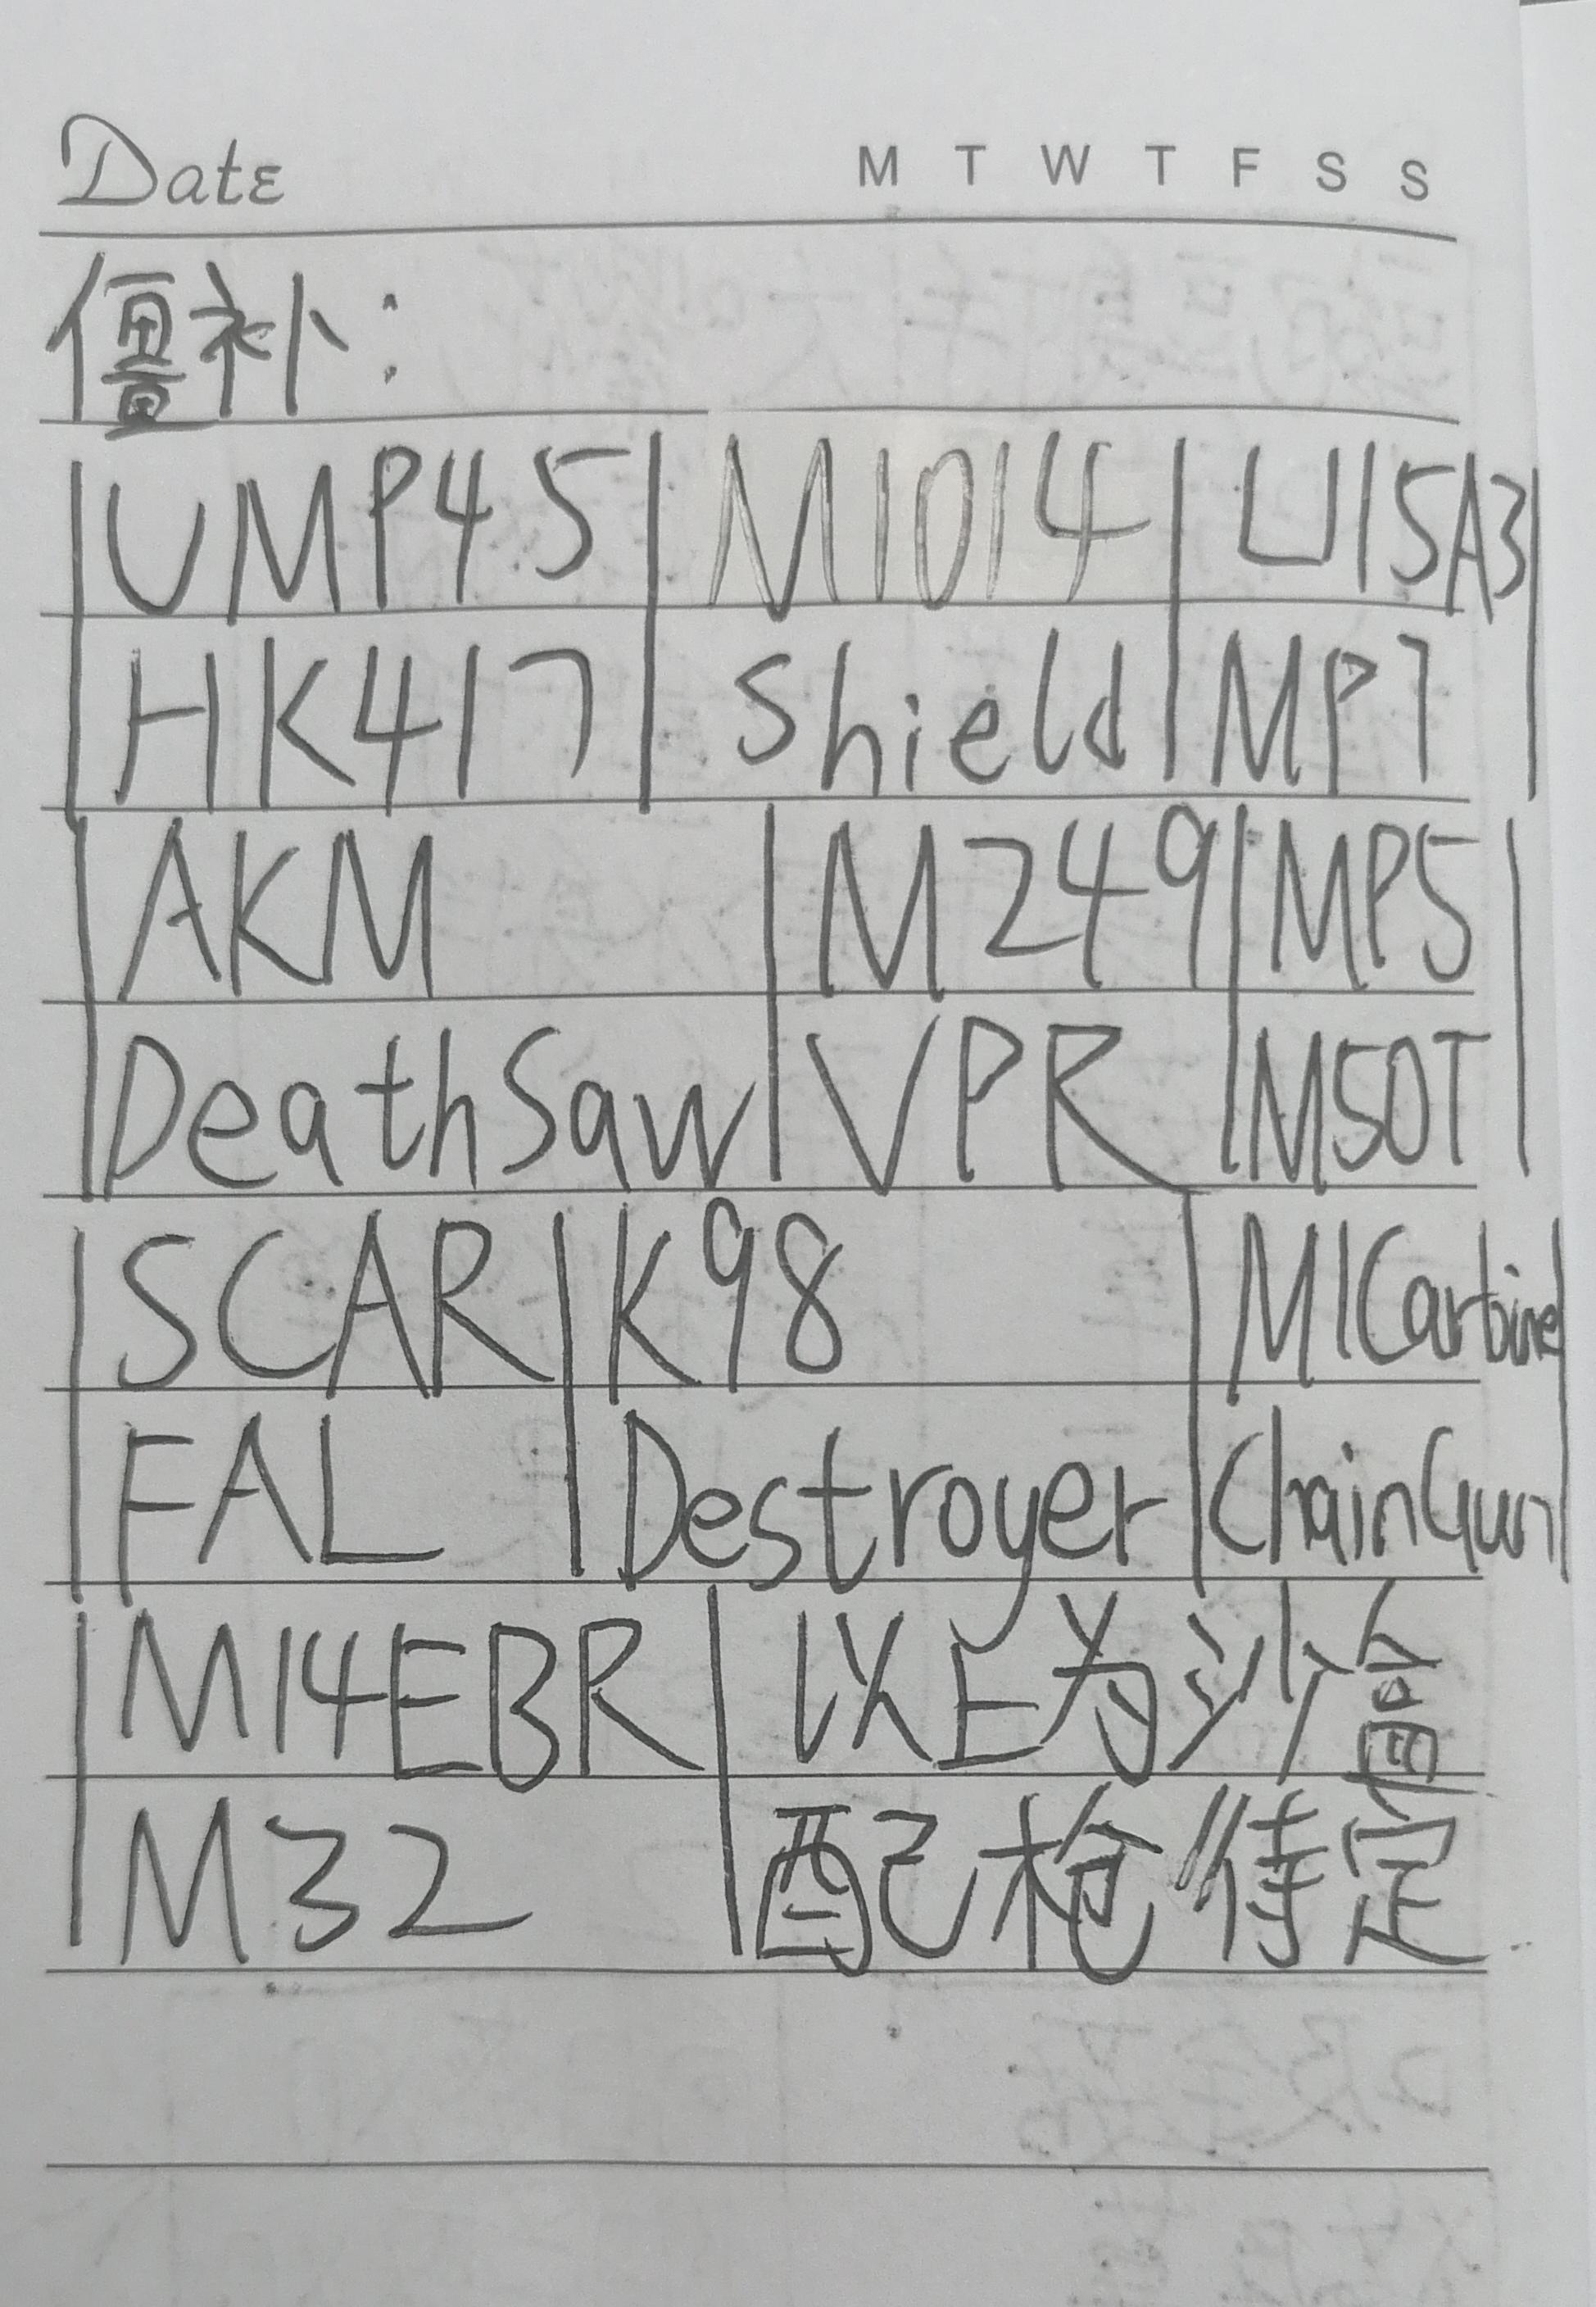 Date M T W T F S S
僵补:
UMP45 M1014 L115A3
HK417 Shield MP7
AKM M249 MP5
DeathSaw VPR M50T
SCAR K98 M1Carbine
FAL Destroyer ChainGun
M14EBR 以上为沙盒
M32 配枪//待定